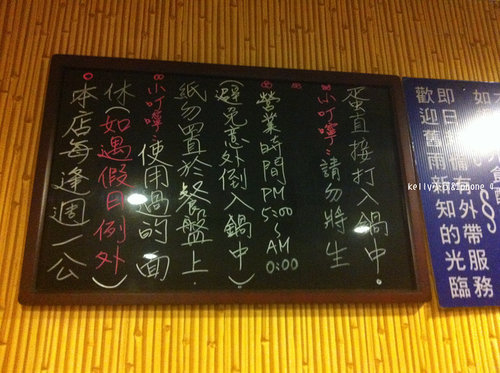 本店每逢週一公
休(如遇假日例外)
小叮嚀:使用過的面
紙勿置於餐盤上.
(避免意外倒入鍋中)
營業時間PM 5:00~AM 0:00
小叮嚀:請勿將生
蛋直接打入鍋中.
歡迎舊雨新知的光臨
即日備有外帶服務
如
§